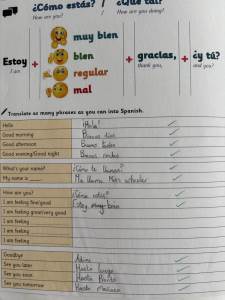 ¿Cómo estás? / ¿Qué tal?
How are you? / How are you doing?
Estoy + muy bien + gracias, + ¿y tú?
I am bien thank you, and you?
regular
mal
Translate as many phrases as you can into Spanish.
Hello ¡Hola!
Good morning Buenos días
Good afternoon Buenas tardes
Good evening/Good night Buenas noches
What's your name? ¿Cómo te llamas?
My name is Me llamo
How are you? ¿Cómo estás?
I am feeling fine/good Estoy bien
I am feeling great/very good
I am feeling
I am feeling
I am feeling
Goodbye Adiós
See you later Hasta luego
See you soon Hasta
See you tomorrow Hasta